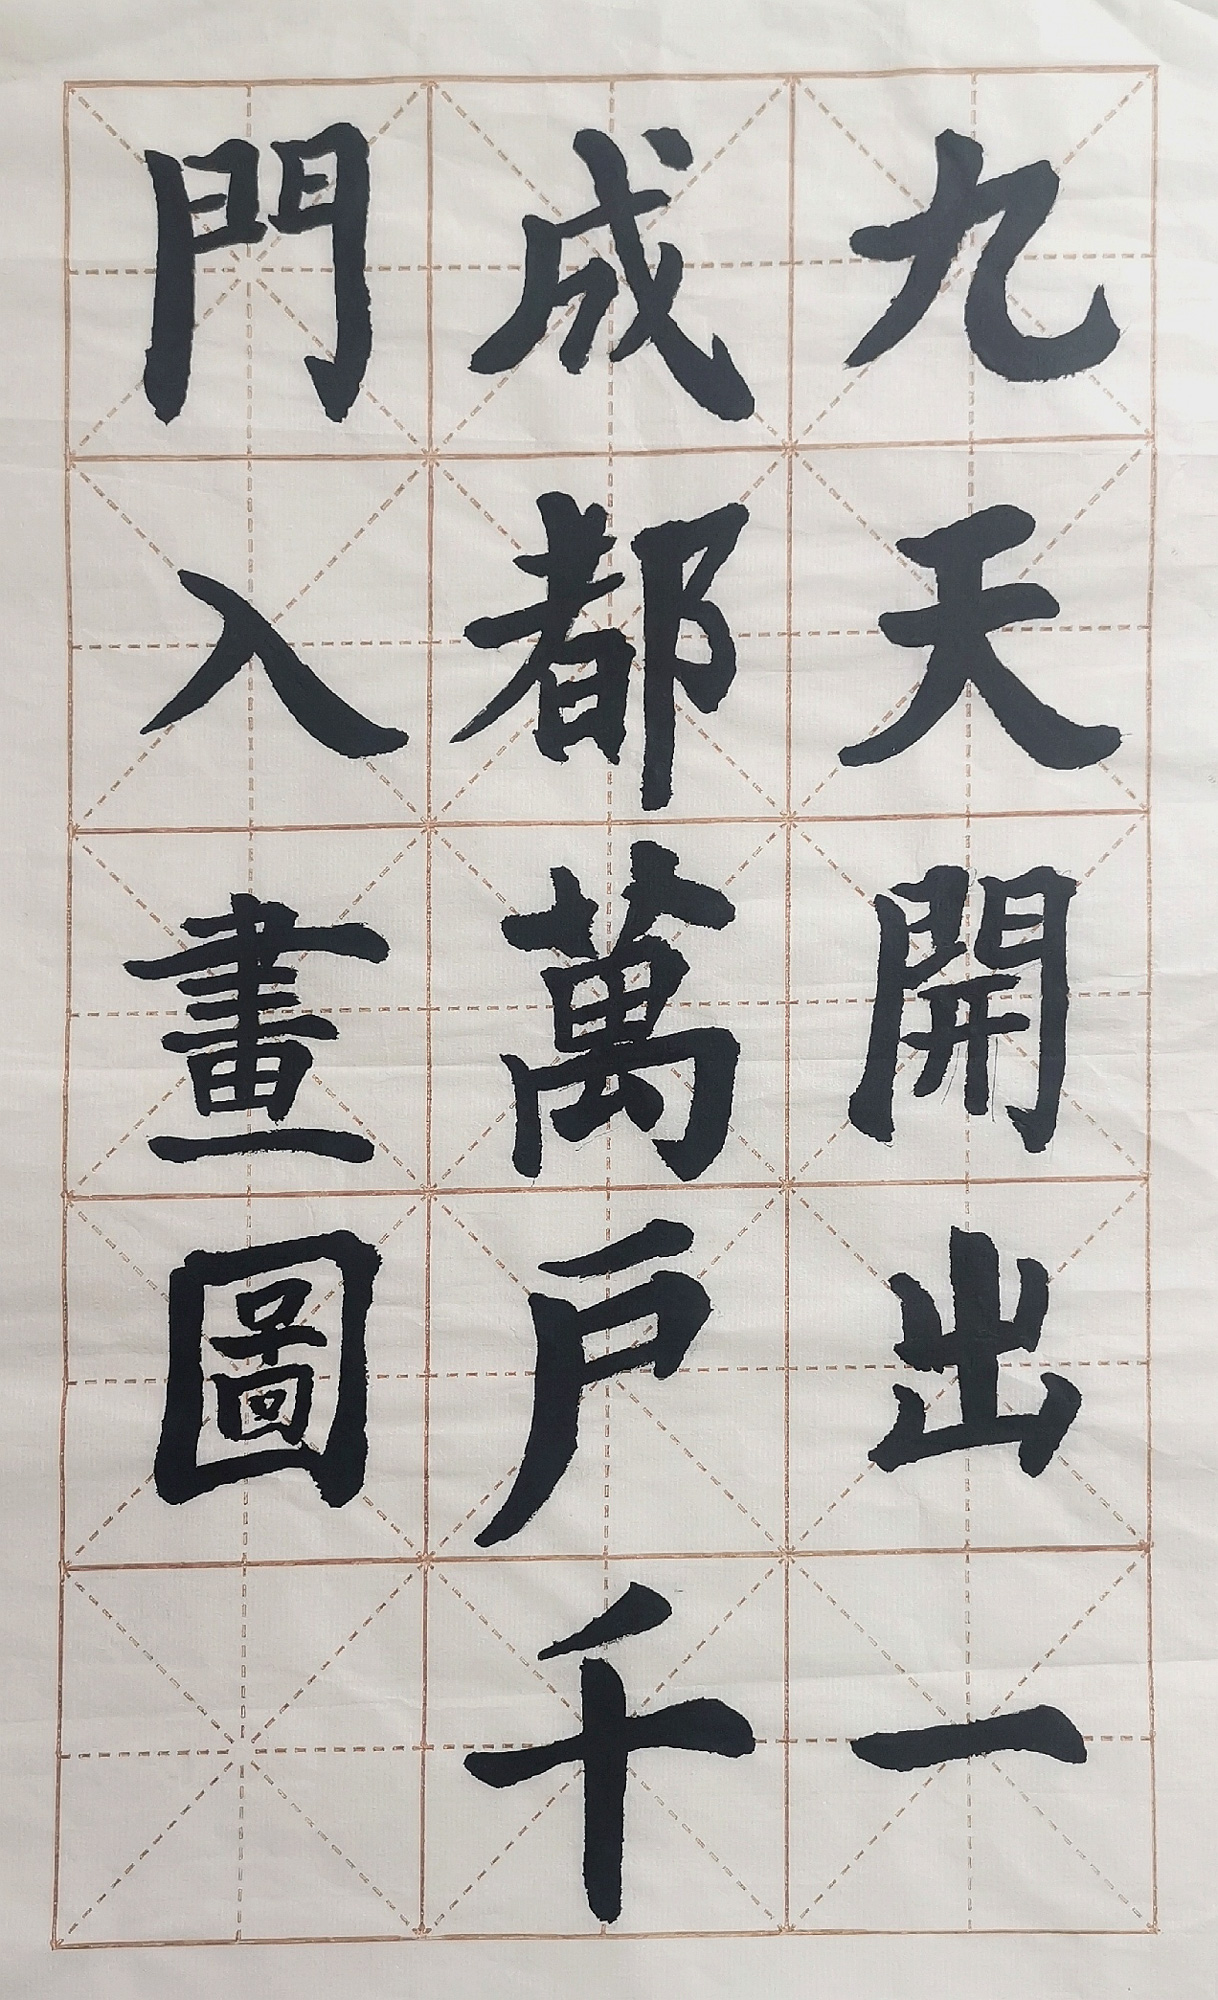 九天開出一
成都萬戶千
門入畫圖